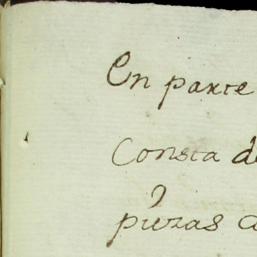 En parte
Consta de
piezas